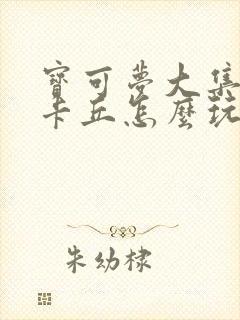 寶可夢大集
卡丘怎麼玩
朱幼棣